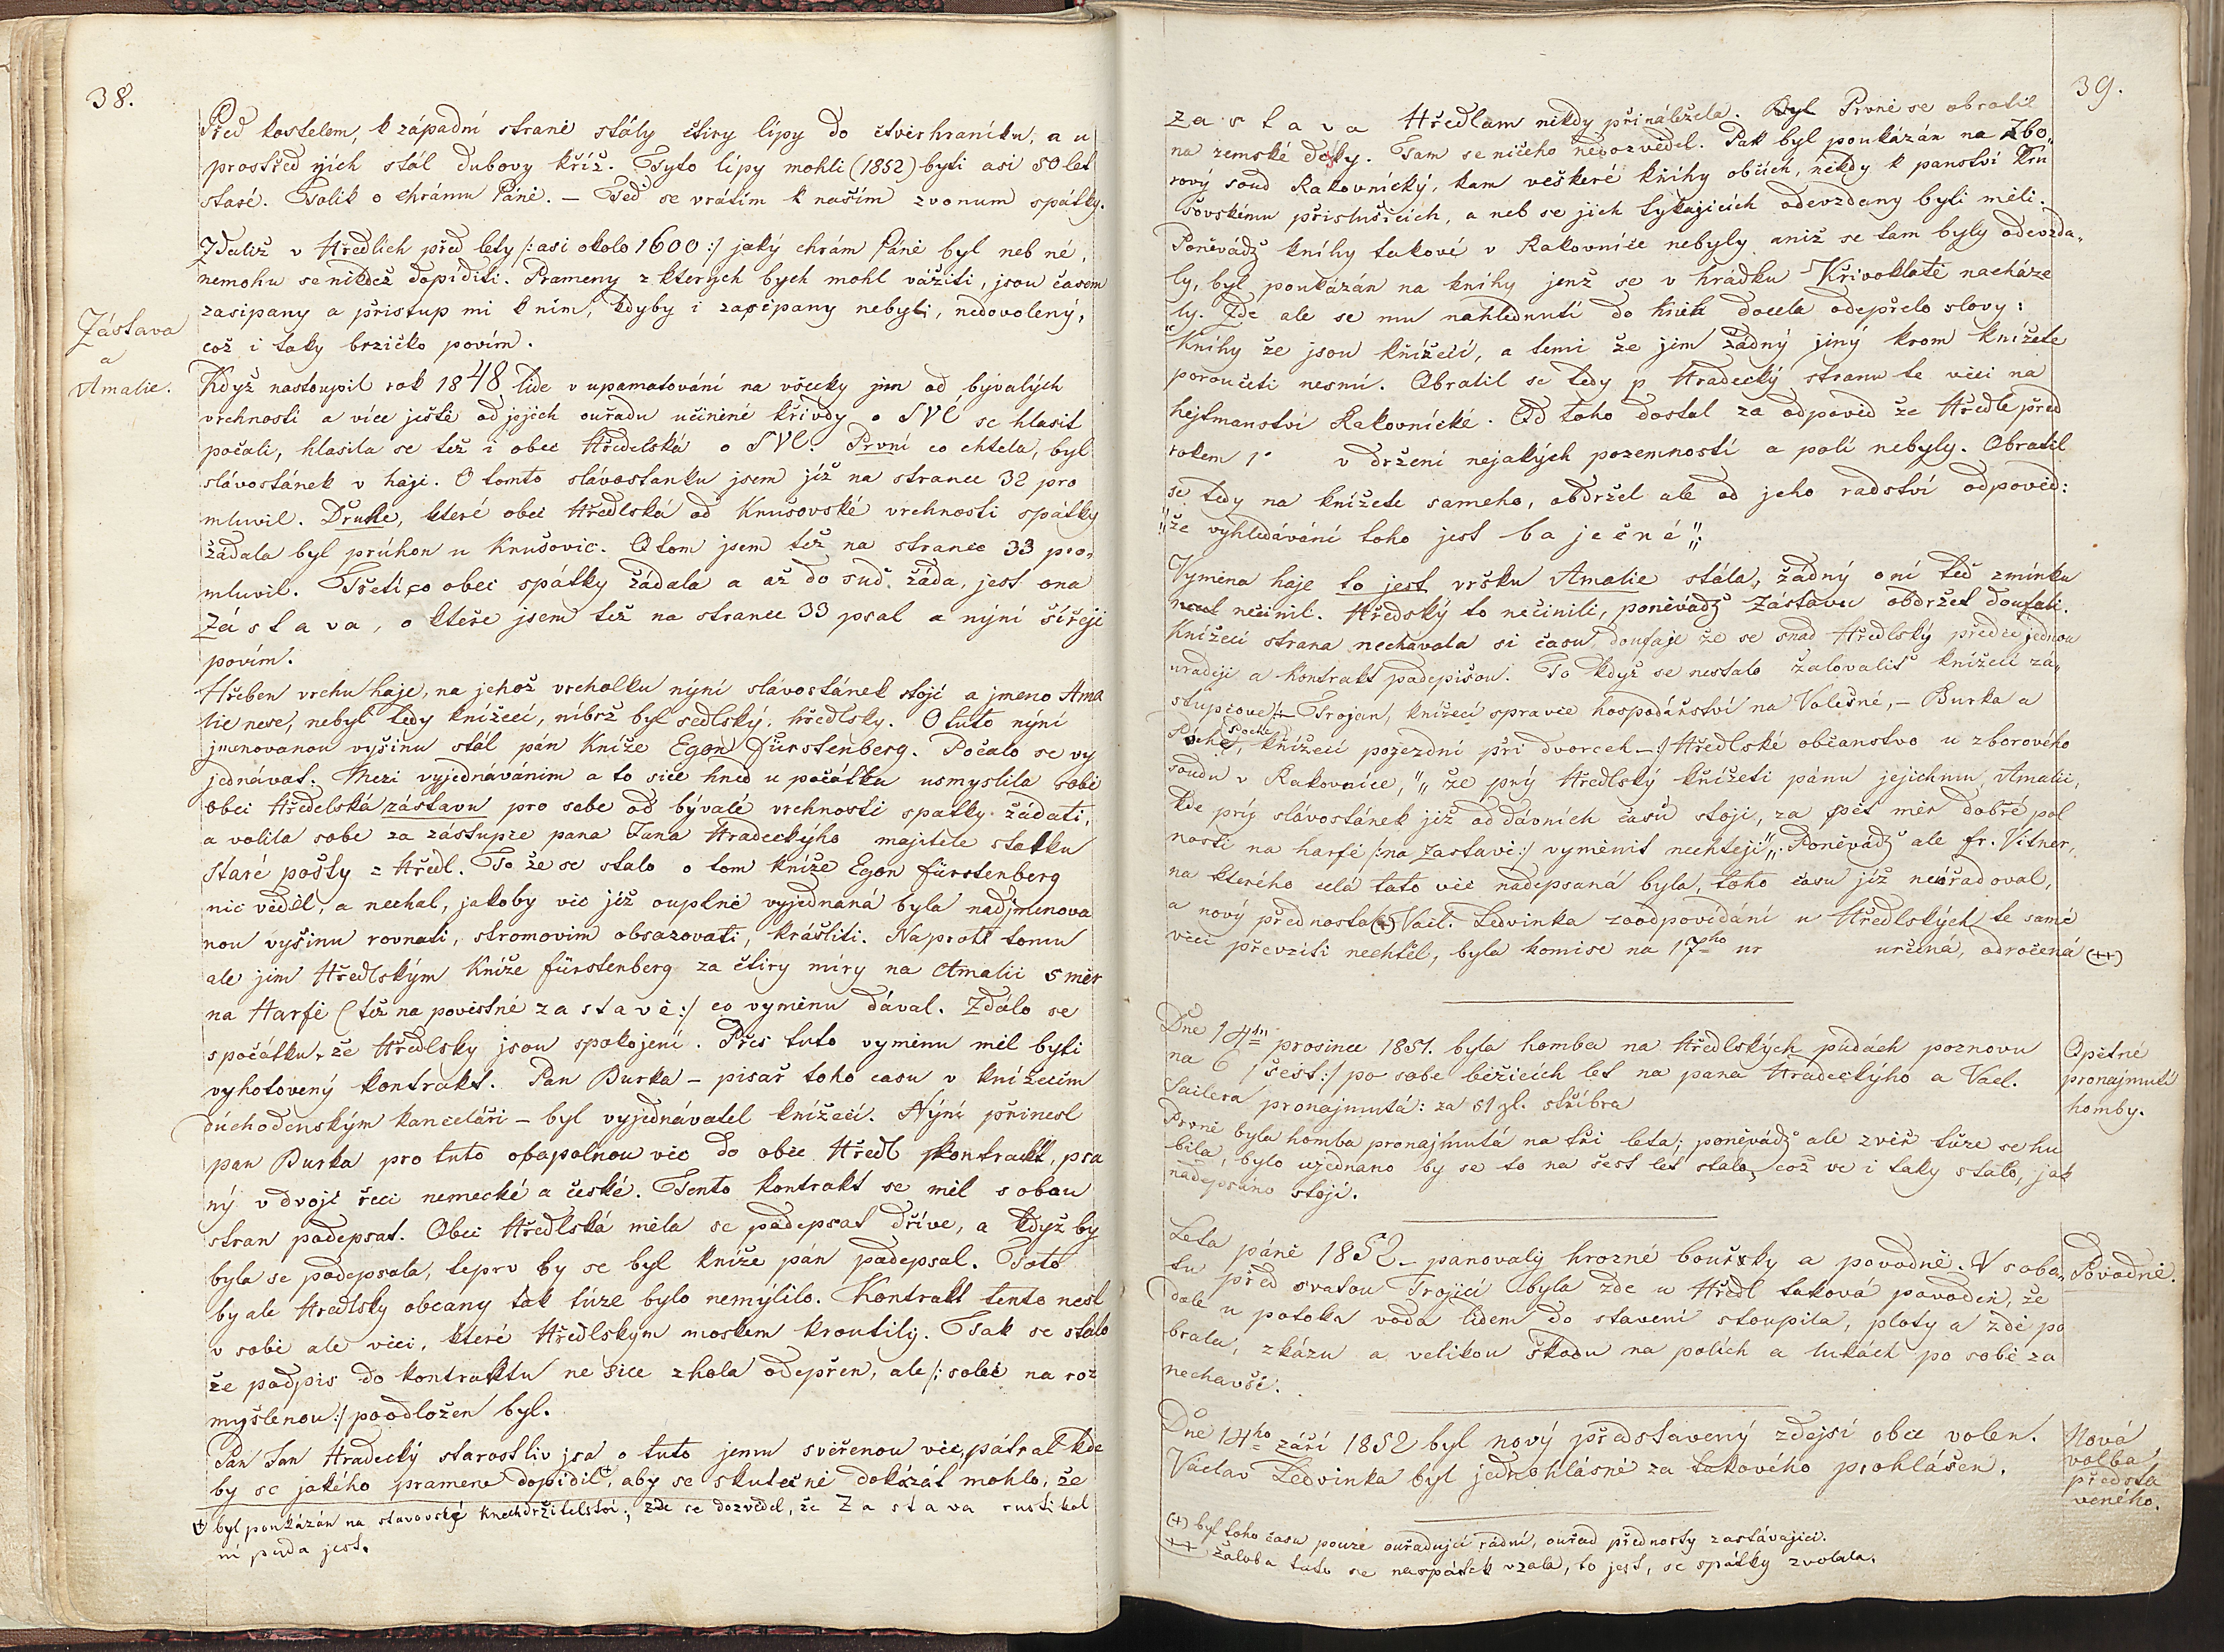 38.
Před kostelem, k západní straně stály čtiry lípy do čtverhraníku, a u
prostřed njich stál dubovy kříž. Tyto lípy mohli (1852) byti asi 50 let
staré. Tolik o chrámu Páně. – Teď se vrátím k našim zvonum spátky.
Zdaliž v Hředlích před lety /: asi okolo 1600 :/ jaký chrám Páně byl neb né,
nemohu se nikdež dopíditi. Prameny z kterých bych mohl vážiti, jsou časem
zasipany a přistup mi k ním, kdyby i zasipany nebyli, nedovolený,
což i taky brzičko povím.
Zástava
a
Amalie.
Když nastoupil rok 1848 lide v upamatování na všecky jim od bývalých
vrchností a více ještě od jejich ouřadu učiněné křivdy o SVÉ se hlasit
počali, hlasila se též i obec Hředelská o SVÉ. První co chtěla, byl
slávostánek v háji. O tomto slávostanku jsem již na strance 32 pro
mluvil. Druhé, které obec Hředlská od Knusovské vrchnosti spátky
žádala byl průhon u Knušovic. O tom jsem též na strance 33 pro„
mluvil. Třetí co obec spátky žádala a až do sud žáda, jest ona
Zástava, o kteře jsem též na strance 33 psal a nýní šířeji
povím.
Hřeben vrchu haje, na jehož vrcholku nýní slávostánek stojí a jmeno Ama
lie nese, nebyl tedy knížecí, nibrž byl sedlský, hředlsky. O tuto nyní
jmenovanou vyšinu stál pán Kníže Egon Fürstenberg. Počalo se vy
jednávat. Mezi vyjednáváním a to sice hned u počátku usmyslila sobě
obec Hředelská zástavu pro sebe od bývalé vrchnosti spatky žádati,
a volila sobe za zástupze pana Jana Hradeckýho majitele statku
Staré pošty z Hředl. To že se stalo o tom kníže Egon Fürstenberg
nic věděl, a nechal, jakoby vec již ouplně vyjednaná byla nadjmenova
nou vyšinu rovnati, stromovim obsazovati, krášliti. Naproti tomu
ale jim Hředlským Kníže Fürstenberg za čtiry míry na Amalii 5 měr
na Harfě (též na povistné zastavě :/ co vyměnu dával. Zdálo se
spočátku, že Hředlsky jsou spokojení. Přes tuto vyměnu měl byti
vyhotovený kontrakt. Pan Burka – pisař toho času v knížecím
důchodenským kanceláři – byl vyjednávatel knížecí. Nýní přinesl
pan Burka pro tuto obapolnou vec do obce Hředl kontrakt, psa
ný v dvojí řeci nemecké a české. Tento kontrakt se měl s obou
stran podepsat. Obec Hředlská měla se podepsat dříve, a když by
byla se podepsala, teprv by se byl kníže pán podepsal. Toto
by ale Hředlsky občany tak túze bylo nemýlilo. Kontrakt tento nesl
v sobě ale věci, které Hředlskym moskem kroutily. Tak se stálo
že podpis do kontraktu ne sice zhola odepřen, ale /: solec na roz
myšlenou :/ poodložen byl.
Pan Jan Hradecký starostliv jsa o tuto jemu svěřenou věc, pátral kde
by se jakého pramene dopidil+, aby se skutečně dokázát mohlo, že
(+ byl poukázán na stavovské knechdržitelství; zde se dozvěděl, že Zastava rustikal
ní půda jest.
39.
zastava Hředlam někdy přináležela. Byl Prvně se obratil
na zemské desky. Tam se ničeho nedozvěděl. Pak byl poukázán na Zbo„
rový soud Rakovnícký, kam veškeré knihy občích, někdy k panství Kru
šovskému přislušicích, a neb se jich tykajicích odevzdany byli měli.
Poněvádž knihy takové v Rakovníce nebyly aniž se tam byly odevzda„
ly, byl poukázán na knihy jenž se v hrádku Křivoklatě nacháze
ly. Zde ale se mu nahlédnutí do knih docela odepřelo slovy:
„Knihy že jsou knížecí, a temi že jim žádný jiný krom knížete
poroučeti nesmí. Obratil se tedy p Hradecký stranu té věci na
hejtmanství Rakovnické. Od toho dostal za odpověd že Hředle před
rokem 1· v držení nejakých pozemností a polí nebyly. Obratil
se tedy na knížete sameho, obdržel ale od jeho radství odpověd:
„že vyhledávání toho jest baječné“.
Vyměna haje to jest vršku Amalie stála, žádný o ní teď zmínku
nečinil. Hředský to nečinili, poněvádž Zástavu obdržet doufali.
Knížecí strana nechavala si času doufaje že se snad Hředlský předce jednou
uraději a kontrakt podepišou. To když se nestalo žalovaliť knížecí zá„
stupcove /: Trojan, knížecí spravce hospodářství na Volešné, – Burka a
Poche, knížecí pojezdní při dvorcch –:/ Hředlské občanstvo u zborového
soudu v Rakovníce, „že prý Hředlský knížeti pánu jejichmu Amalii,
kde prý slávostánek již od dávních časů stojí, za pět měr dobré pol
nosti na harfě /: na zastavě :/ vyměnit nechtějí“. Poněvádž ale Fr. Vitner,
na kterého celá tato věc nadepsaná byla, toho času již neouřadoval,
a nový přednosta (+) Václ. Ledvinka zoodpovídání u Hředlských té samé
věci převzíti nechtěl, byla komise na 17ho určená, odročená (++)
Opětné
pronajmutí
homby.
Dne 14tn prosince 1851. byla homba na Hředlských půdách poznovu
na 6 /: šest :/ po sobe běžicích let na pana Hradeckýho a Václ.
Sailera pronajmutá: za 51 zl. stříbra
Prvně byla homba pronajmutá na tři leta; poněvádž ale zvěř túze se hu
bila, bylo ujednano by se to na šest let stalo, což se i taky stálo, jak
nadepsáno stojí.
Povodně.
Leta páně 1852 – panovaly hrozné bouřky a povodně. V sobo„
tu před svatou Trojicí byla zde u Hředl taková povodeň, že
dole u potoka voda lidem do stavení stoupila, ploty a zdě po
brala, zkázu a velikou škodu na polích a lukách po sobě za
nechavši.
Nová
volba
předsta
veného.
Dne 14ho září 1852 byl nový představený zdejší obce volen.
Václav Ledvinka byl jednohlásně za takového prohlášen.
(+) byl toho času pouzé ouřadující rádní, ouřad přednosty zastávající.
++ žaloba tato se naspátek vzala, to jest, se spátky zvolala.